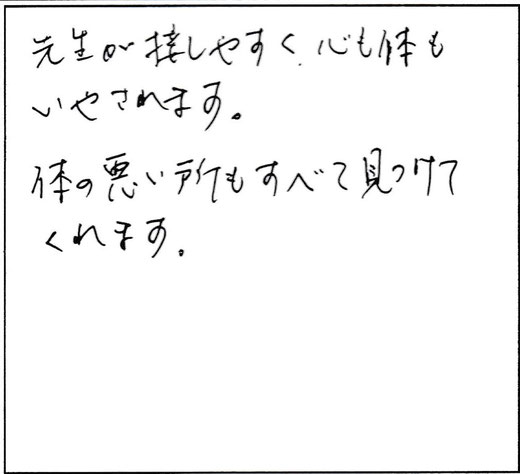 先生が接しやすく、心も体も
いやされます。
体の悪い所もすべて見つけて
くれます。